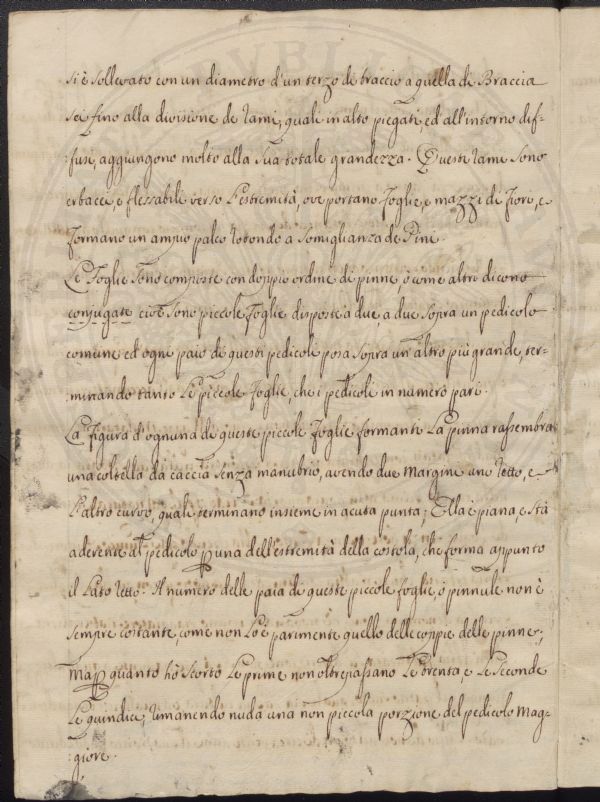 si è sollevato con un diametro d'un terzo di braccio a quella di Braccia
sei fino alla divisione de rami, quali in alto piegati, ed all'intorno dif-
:fusi, aggiungono molto alla sua totale grandezza. Queste rame sono
erbacee, e flessabili verso l'estremità, ove portano foglie, e mazzi di fiore, e
formano un ampio palco rotondo a somiglianza de Pini.
Le foglie sono composte con doppio ordine di pinne o come altri dicono
conjugate cioè sono piccole foglie disposte a due, a due sopra un pedicolo
comune ed ogni paio di questi pedicoli posa sopra un altro più grande, ter-
:minando tanto le piccole foglie, che i pedicoli in numero pari.
La figura d'ognuna di queste piccole foglie formante la pinna rassembra
una coltella da caccia senza manubrio, avendo due margine uno retto, e
l'altro curvo, quali terminano insieme in acuta punta; Ella è piana, e stà
aderente al pedicolo p una dell'estremità della costola, che forma appunto
il lato retto. Il numero delle paia di queste piccole foglie, o pinnule non è
sempre costante, come non lo è parimente quello delle coppie delle pinne;
Ma p quanto hò scorto le prime non oltrepassano le trenta e le seconde
le quindici, rimanendo nuda una non piccola porzione del pedicolo mag-
:giore.